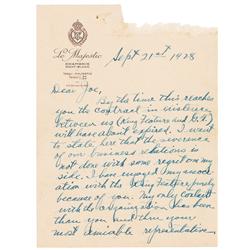 Le Majestic
CHAMONIX
MONT-BLANC
Sept 21st 1928
Dear Joe,
By the time this reaches
you the contract in existence
between us (King Feature and G.F.)
will have about expired. I want
to state, here that the severence
of our business relations is
not done with some regret on my
side. I have enjoyed my associ-
ation with the King Feature purely
because of you. My only contact
with the organization has been
than you and thru your
most amiable representative